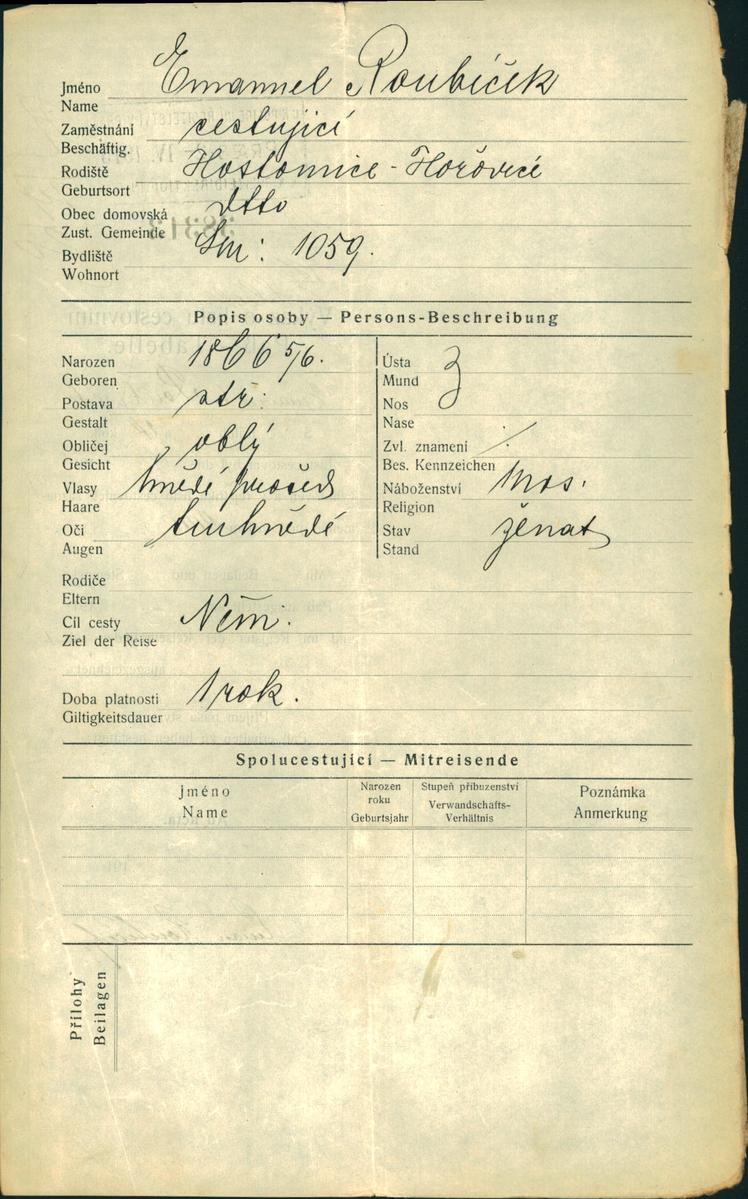 Jméno Emanuel Roubíček
Name
Zaměstnání cestující
Beschäftig.
Rodiště Hostomice - Hořovice
Geburtsort
Obec domovská dtto
Zust. Gemeinde
Bydliště Sm: 1059.
Wohnort
Popis osoby — Persons-Beschreibung
Narozen 1866 5/6.
Geboren
Postava stř:
Gestalt
Obličej oblý
Gesicht
Vlasy hnědé prošed
Haare
Oči tmhnědé
Augen
Ústa
Mund
Nos
Nase
Zvl. znamení
Bes. Kennzeichen
Náboženství mos.
Religion
Stav ženat
Stand
Rodiče
Eltern
Cíl cesty Něm.
Ziel der Reise
Doba platnosti 1 rok.
Giltigkeitsdauer
Spolucestující — Mitreisende
Jméno
Name
Narozen
roku
Geburtsjahr
Stupeň příbuzenství
Verwandschafts-
Verhältnis
Poznámka
Anmerkung
Přílohy
Beilagen